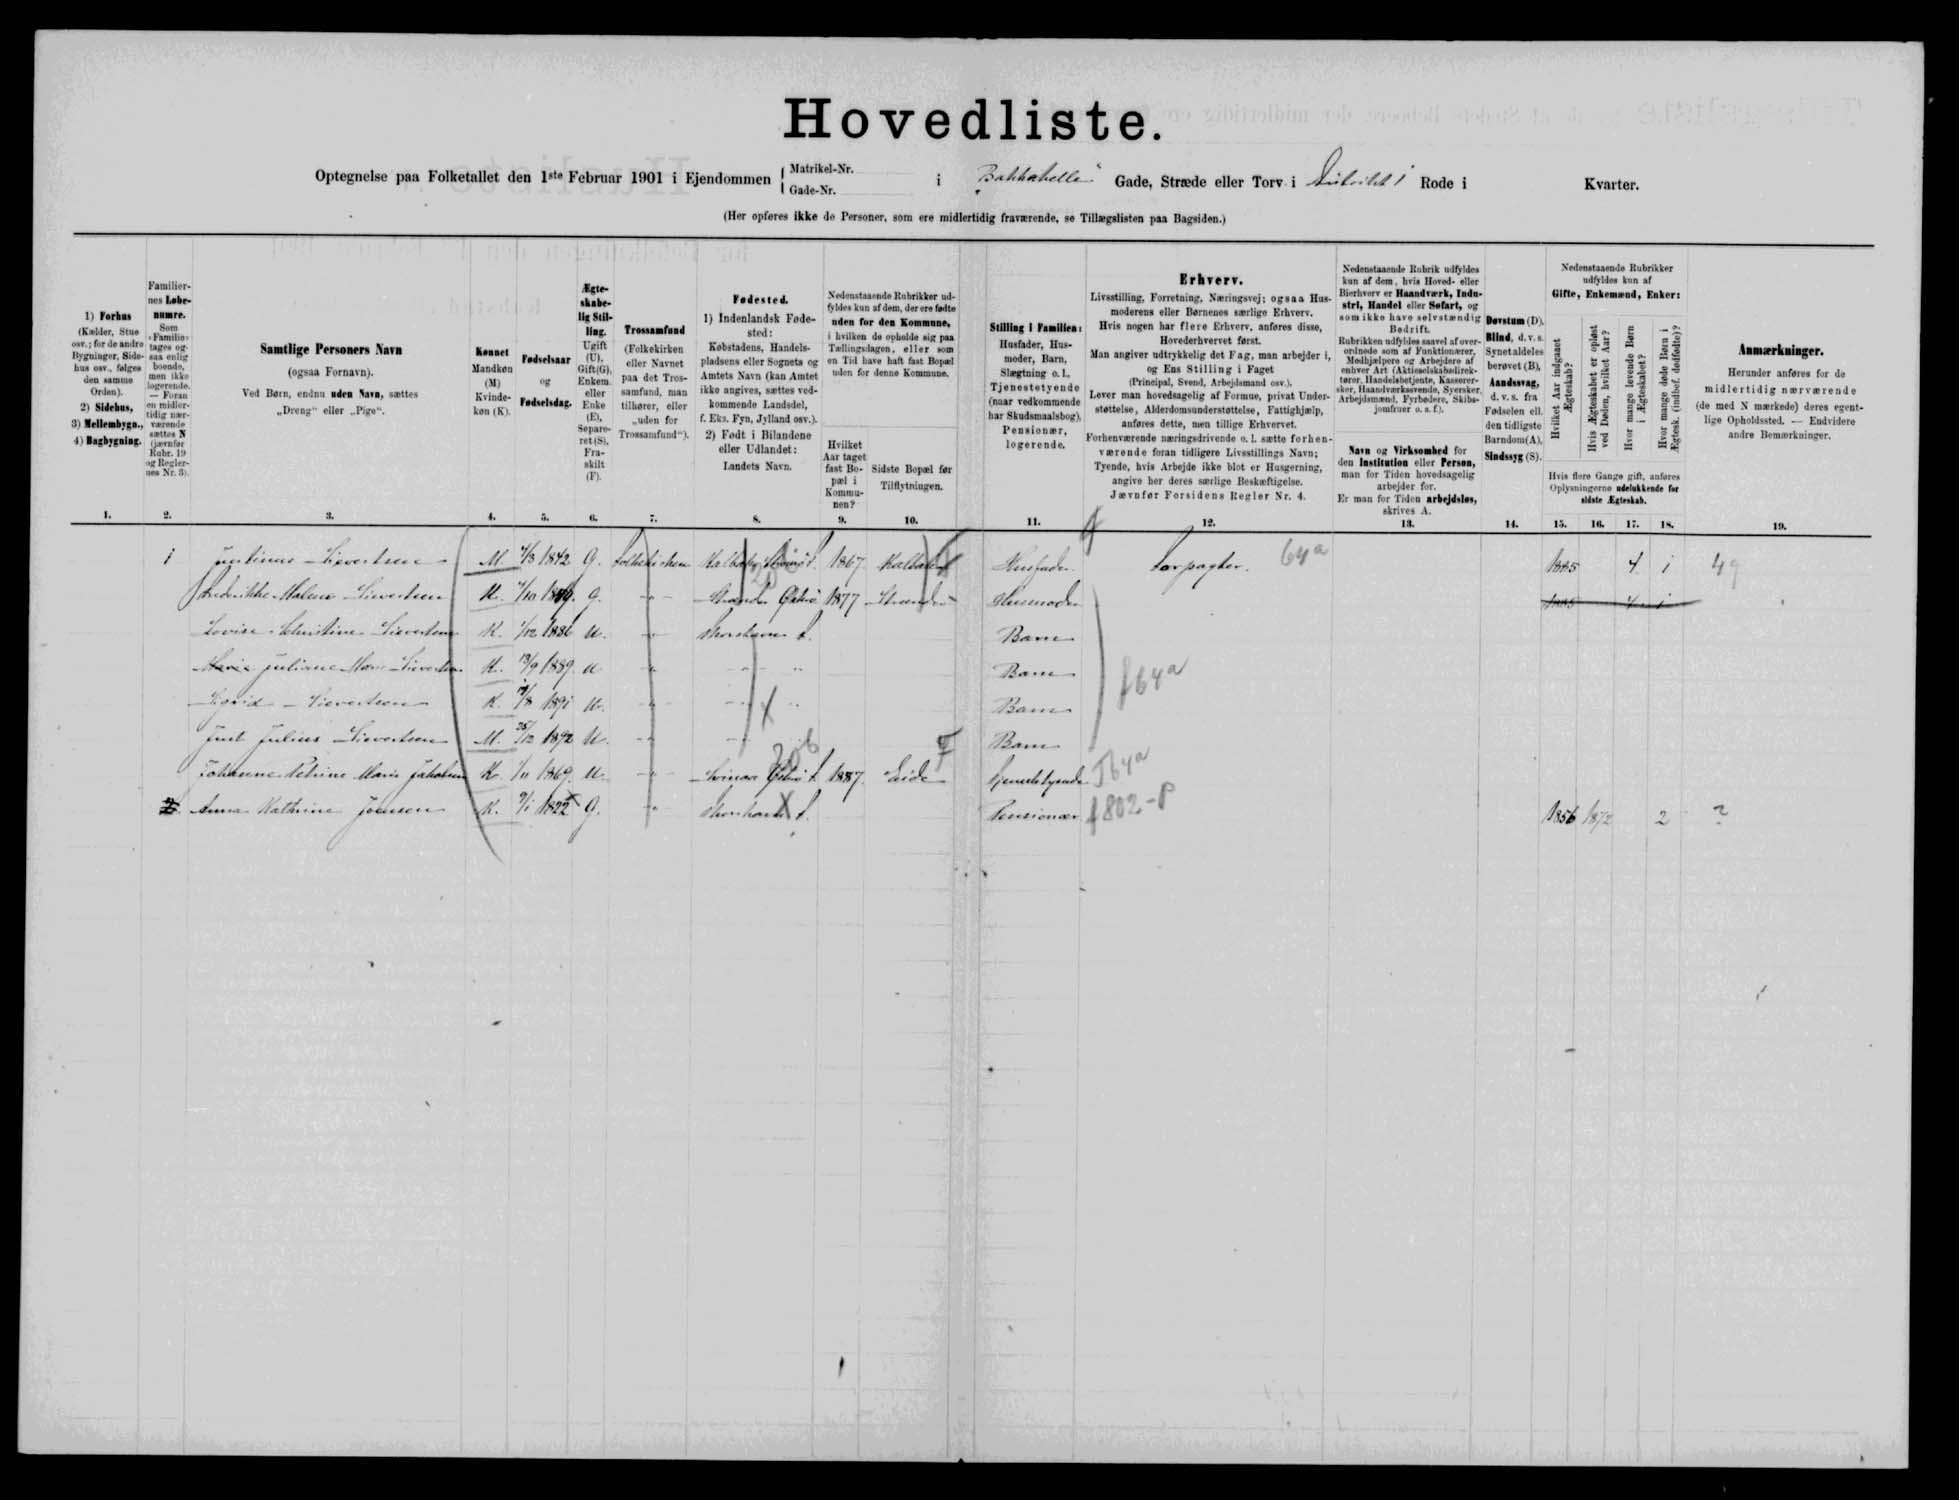 Hovedliste.
Optegnelse paa Folketallet den 1ste Februar 1901 i Ejendommen { Matrikel-Nr. Gade-Nr. i "Bakkahella" Gade, Stræde eller Torv i Distrikt 1 Rode i Kvarter.
(Her opføres ikke de Personer, som ere midlertidig fraværende, se Tillægslisten paa Bagsiden.)
1) Forhus (Kælder, Stue osv.; for de andre Bygninger, Sidehus osv., følges den samme Orden). 2) Sidehus, 3) Mellembygn., 4) Bagbygning.
Familiernes Løbenumre. Som »Familie« tages ogsaa enlig boende, men ikke logerende. — Foran en midlertidig nærværende sættes N (jævnfør Rubr. 19 og Reglernes Nr. 3).
Samtlige Personers Navn (ogsaa Fornavn). Ved Børn, endnu uden Navn, sættes „Dreng“ eller „Pige“.
Kønnet Mandkøn (M) Kvindekøn (K).
Fødselsaar og Fødselsdag.
Ægteskabelig Stilling. Ugift (U). Gift(G), Enkem. eller Enke (E), Separeret(S), Fraskilt (F).
Trossamfund (Folkekirken eller Navnet paa det Trossamfund, man tilhører, eller „uden for Trossamfund“).
Fødested. 1) Indenlandsk Fødested: Købstadens, Handelspladsens eller Sognets og Amtets Navn (kan Amtet ikke angives, sættes vedkommende Landsdel, f. Eks. Fyn, Jylland osv.). 2) Født i Bilandene eller Udlandet: Landets Navn.
Nedenstaaende Rubrikker udfyldes kun af dem, der ere fødte uden for den Kommune, i hvilken de opholde sig paa Tællingsdagen, eller som en Tid have haft fast Bopæl uden for denne Kommune.
Hvilket Aar taget fast Bopæl i Kommunen?
Sidste Bopæl før Tilflytningen.
Stilling i Familien: Husfader, Husmoder, Barn, Slægtning o. l., Tjenestetyende (naar vedkommende har Skudsmaalsbog), Pensionær, logerende.
Erhverv.
Livsstilling, Forretning, Næringsvej; ogsaa Husmoderens eller Børnenes særlige Erhverv.
Hvis nogen har flere Erhverv, anføres disse, Hovederhvervet først.
Man angiver udtrykkelig det Fag, man arbejder i, og Ens Stilling i Faget (Principal, Svend, Arbejdsmand osv.).
Lever man hovedsagelig af Formue, privat Understøttelse, Alderdomsunderstøttelse, Fattighjælp, anføres dette, men tillige Erhvervet.
Forhenværende næringsdrivende o. l. sætte forhenværende foran tidligere Livsstillings Navn; Tyende, hvis Arbejde ikke blot er Husgerning, angive her deres særlige Beskæftigelse.
Jævnfør Forsidens Regler Nr. 4.
Nedenstaaende Rubrik udfyldes kun af dem, hvis Hoved- eller Bierhverv er Haandværk, Industri, Handel eller Søfart, og som ikke have selvstændig Bedrift.
Rubrikken udfyldes saavel af overordnede som af Funktionærer, Medhjælpere og Arbejdere af enhver Art (Aktieselskabsdirektører, Handelsbetjente, Kasserersker, Haandværkssvende, Syersker, Arbejdsmænd, Fyrbødere, Skibsjomfruer o. s. f.).
Navn og Virksomhed for den Institution eller Person, man for Tiden hovedsagelig arbejder for. Er man for Tiden arbejdsløs, skrives A.
Døvstum (D). Blind, d. v. s. Synet aldeles berøvet (B), Aandssvag, d. v. s. fra Fødselen ell. den tidligste Barndom(A), Sindssyg (S).
Nedenstaaende Rubrikker udfyldes kun af Gifte, Enkemænd, Enker:
Hvilket Aar indgaaet Ægteskab?
Hvis Ægteskabet er opløst ved Døden, hvilket Aar?
Hvor mange levende Børn i Ægteskabet?
Hvor mange døde Børn i Ægtesk. (indbef. dødfødte)?
Hvis flere Gange gift, anføres Oplysningerne udelukkende for sidste Ægteskab.
Anmærkninger. Herunder anføres for de midlertidig nærværende (de med N mærkede) deres egentlige Opholdssted. — Endvidere andre Bemærkninger.
1. 2. 3. 4. 5. 6. 7. 8. 9. 10. 11. 12. 13. 14. 15. 16. 17. 18. 19.
1 Justinus Sivertsen M. 1842 G. Folkekirken Kalbak 1867 Kalbak Husfader 64a 1885 4 1 49
Frederikke Malene Sivertsen K. G. -"- Strænder Østrø 1877 Strænder Husmoder 1885 4 1
Lovise Christine Sivertsen K. 1/12 1886 U. -"- Thorshavn f. Barn
Juliane Marie Sivertsen K. 13/9 1889 U -"- -"- Barn f64a
Sigrid Sivertsen K. 1891 U. -"- -"- Barn
Just Julius Sivertsen M. 1892 U. -"- Barn
Johanne Petrine Marie Jakobsen K. 1/11 1869 U. -"- Østrø f. 206 1887 Eide Tjenestetyende T64a
2 Anna Kathrine Joensen K. 9/1 1822 G. -"- Thorshavn f. Pensionær f802-P 1856 1872 2 ?